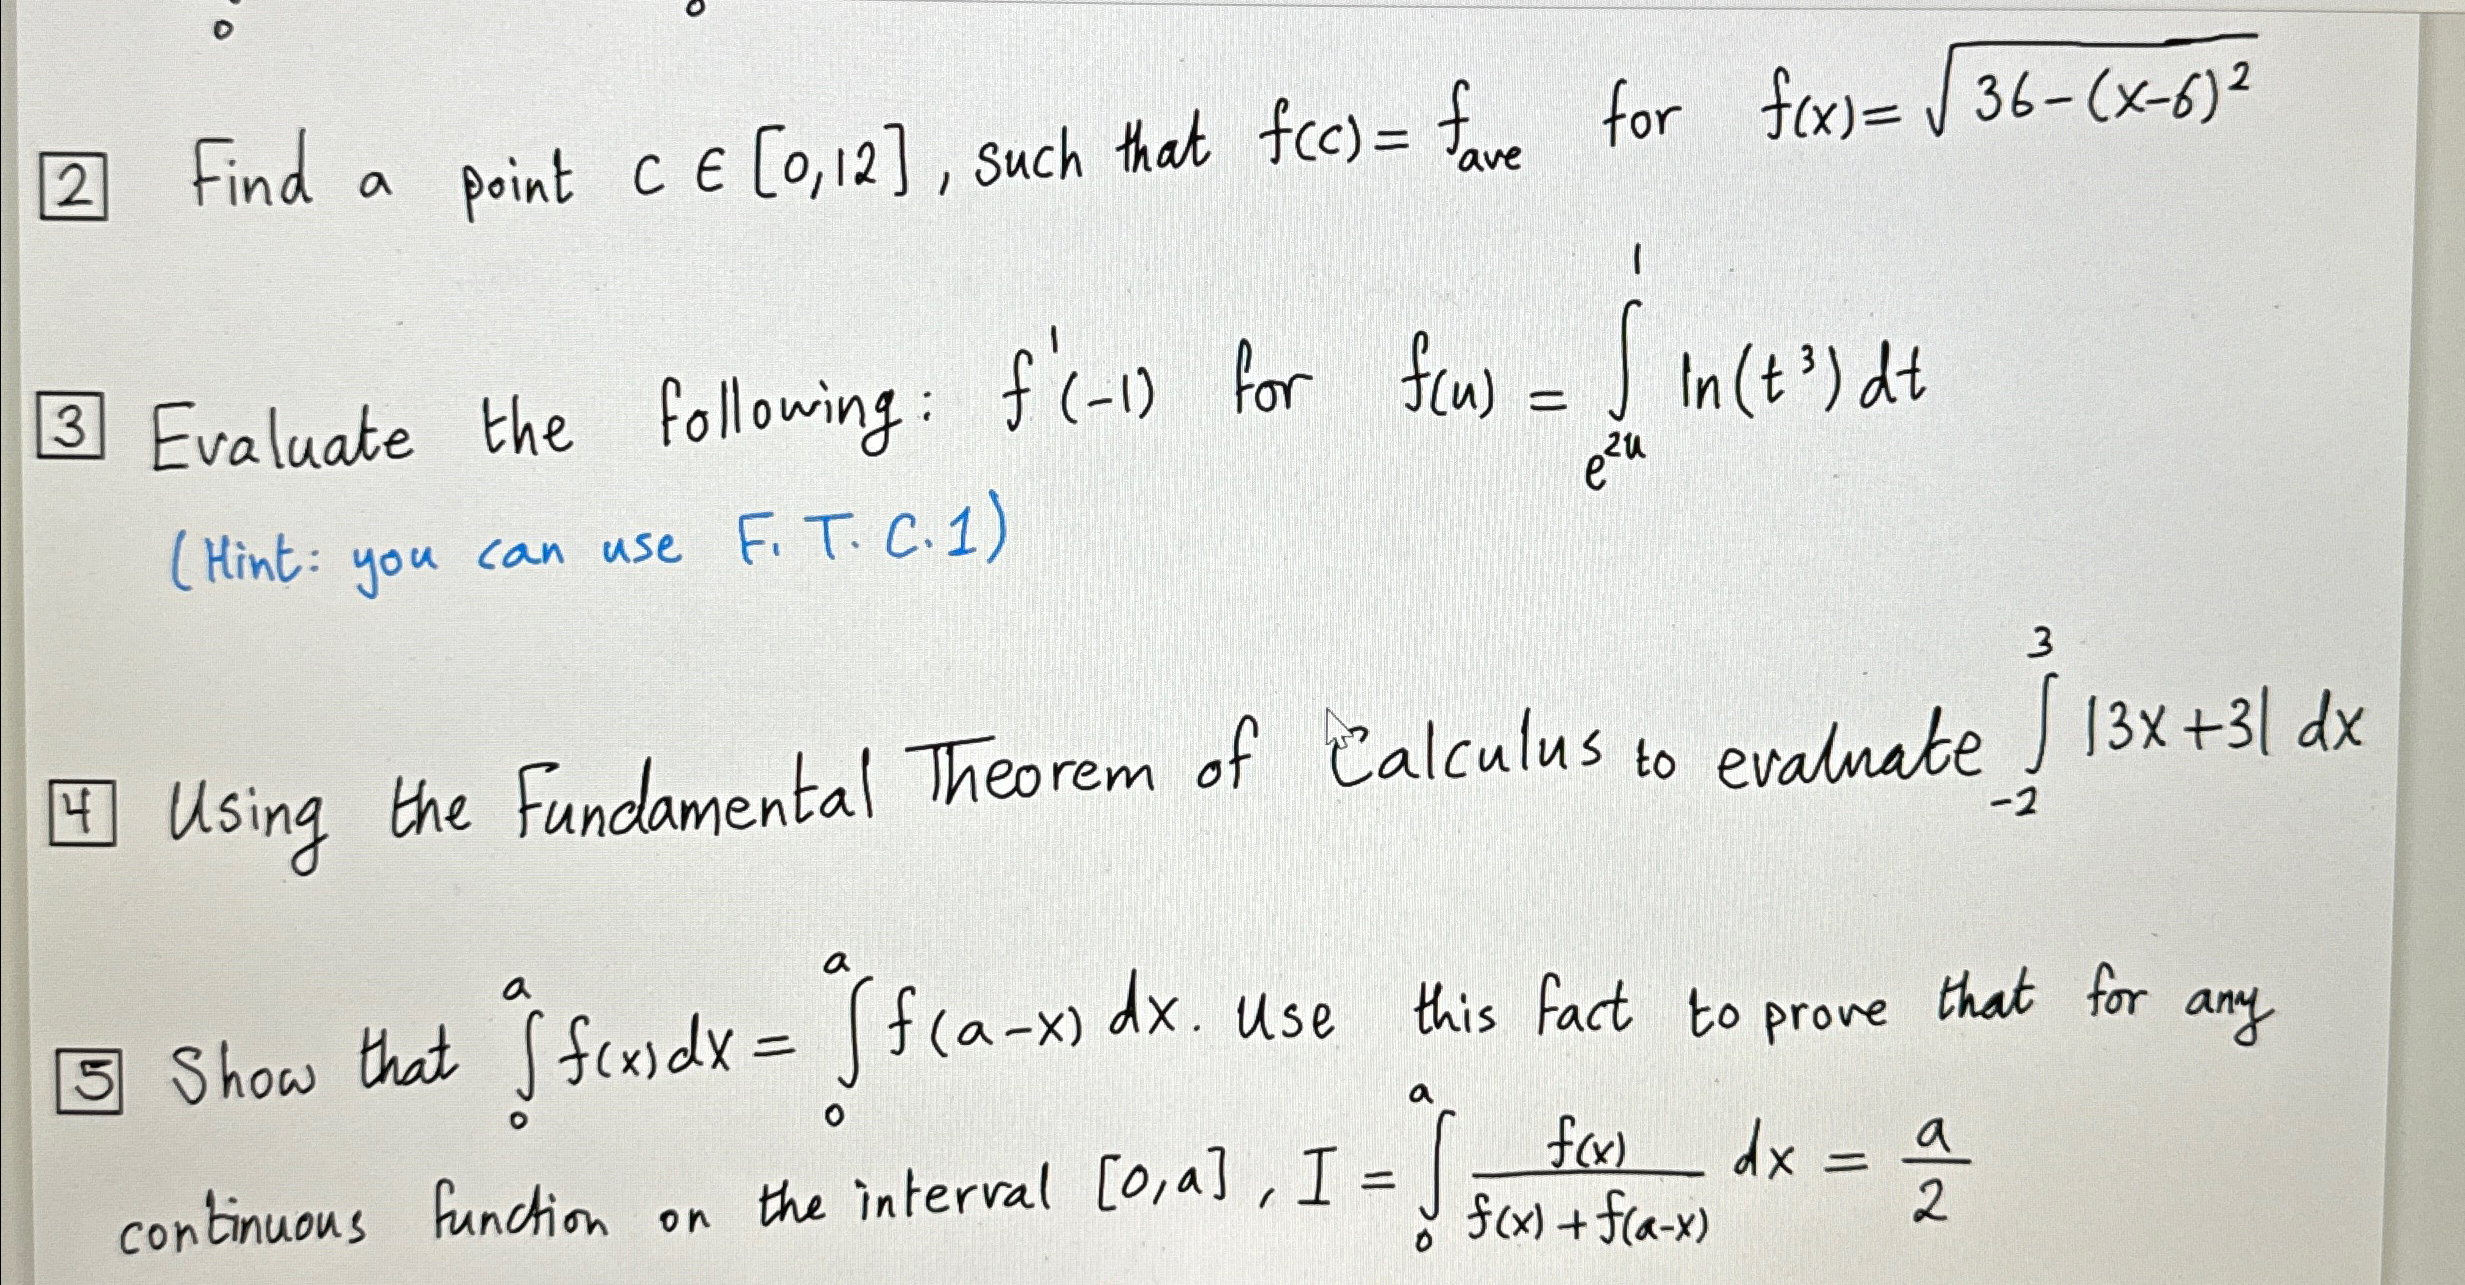 0 0
2 Find a point C ∈ [0,12], such that f(c) = f_ave for f(x) = √(36-(x-6)²)
3 Evaluate the following: f'(-1) for f(u) = ∫_{e^{2u}}^{1} ln(t³) dt
(Hint: you can use F.T.C.1)
4 Using the Fundamental Theorem of Calculus to evaluate ∫_{-2}^{3} |3x+3| dx
5 Show that ∫_0^a f(x)dx = ∫_0^a f(a-x) dx. Use this fact to prove that for any
continuous function on the interval [0,a], I = ∫_0^a f(x)/(f(x)+f(a-x)) dx = a/2